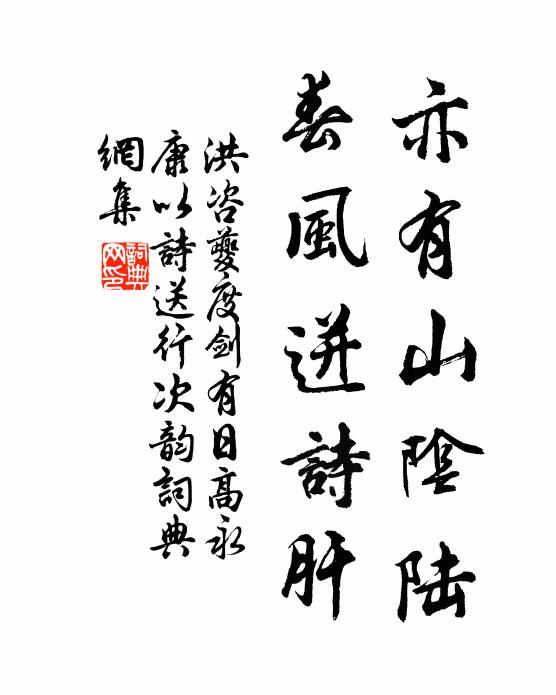 亦有山陰陆
春風迸詩肝
洪咨夔度劍有日高永
康以詩送行次韵詞典
網集
詞典网印